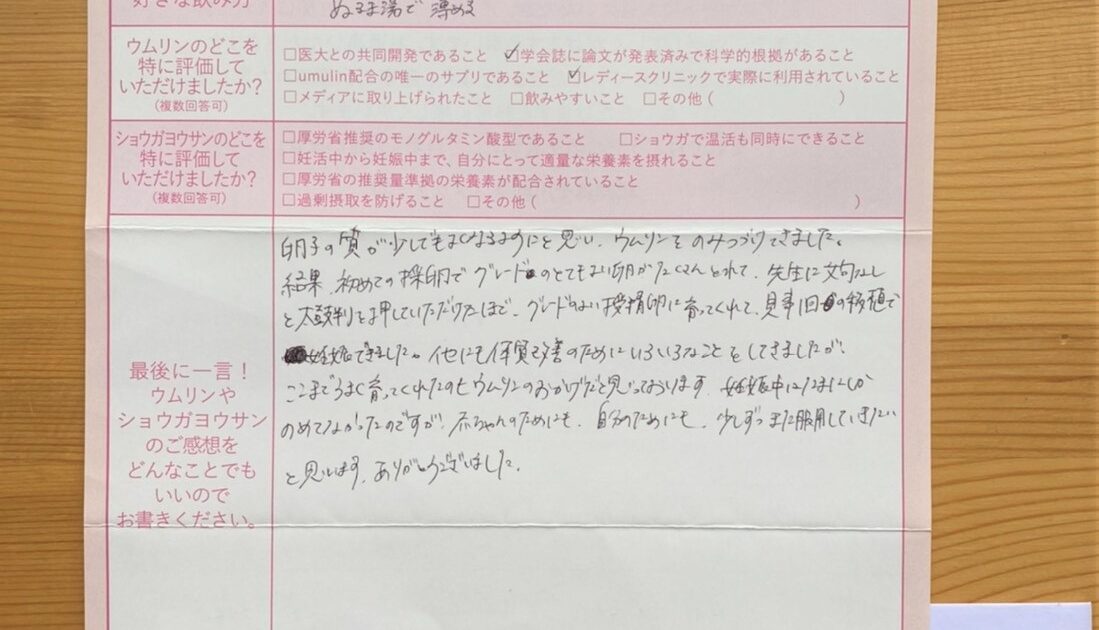 好きな飲み方
ぬるま湯で 薄める
ウムリンのどこを
特に評価して
いただけましたか?
(複数回答可)
□医大との共同開発であること ☑学会誌に論文が発表済みで科学的根拠があること
□umulin配合の唯一のサプリであること ☑レディースクリニックで実際に利用されていること
□メディアに取り上げられたこと □飲みやすいこと □その他( )
ショウガヨウサンのどこを
特に評価して
いただけましたか?
(複数回答可)
□厚労省推奨のモノグルタミン酸型であること □ショウガで温活も同時にできること
□妊活中から妊娠中まで、自分にとって適量な栄養素を摂れること
□厚労省の推奨量準拠の栄養素が配合されていること
□過剰摂取を防げること □その他( )
最後に一言!
ウムリンや
ショウガヨウサン
のご感想を
どんなことでも
いいので
お書きください。
卵子の質が少しでもよくなるようにと思い、ウムリンをのみつづけてきました。
結果、初めての採卵でグレードのとてもよい卵がたくさんとれて、先生に文句なし
と太鼓判を押していただけたほど、グレードのよい受精卵に育ってくれて、見事1回の移植で
妊娠できました。他にも体質改善のためにいろいろなことをしてきましたが、
ここまでうまく育ってくれたのもウムリンのおかげだと思っております。妊娠中はたまにしか
のめてなかったのですが、赤ちゃんのためにも、自分のためにも、少しずつまた服用していきたい
と思います。ありがとうございました。